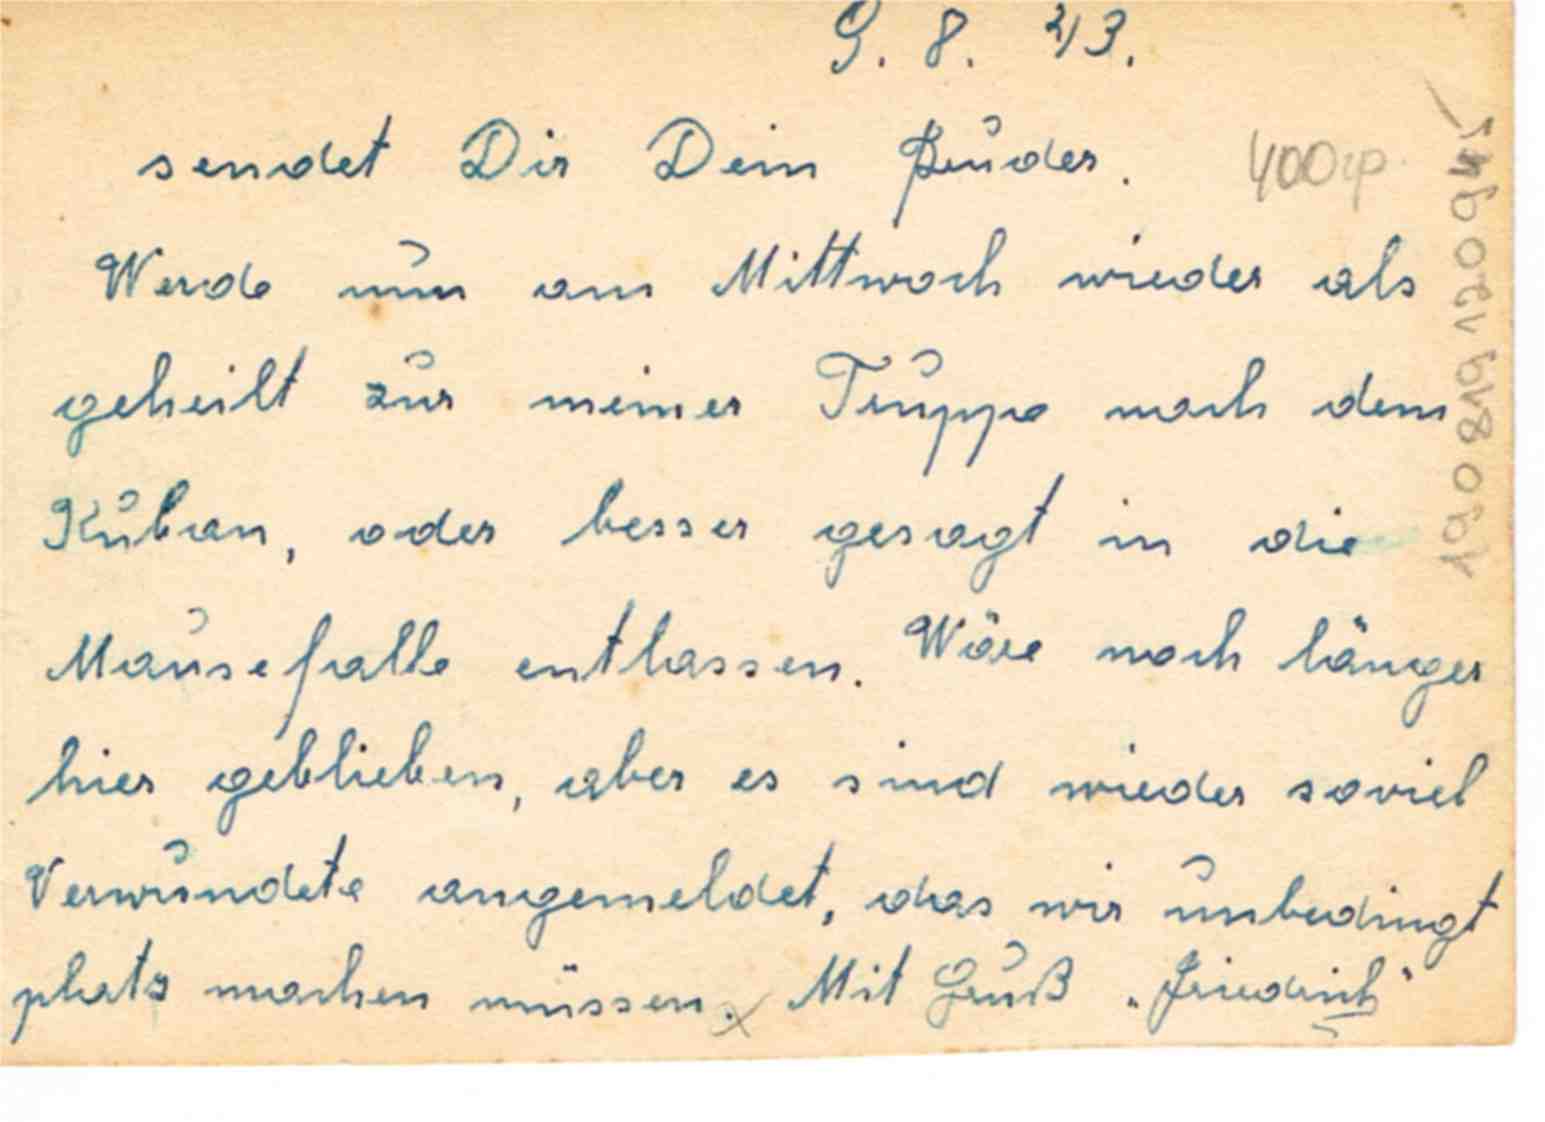 9. 8. 43.
sendet Dir Dein Bruder.
Werde nun am Mittwoch wieder als
geheilt zur meiner Truppe nach dem
Kuban, oder besser gesagt in die
Mausefalle entlassen. Wäre noch länger
hier geblieben, aber es sind wieder soviel
Verwundete angemeldet, das wir unbedingt
platz machen müssen. Mit Gruß „Friedrich"